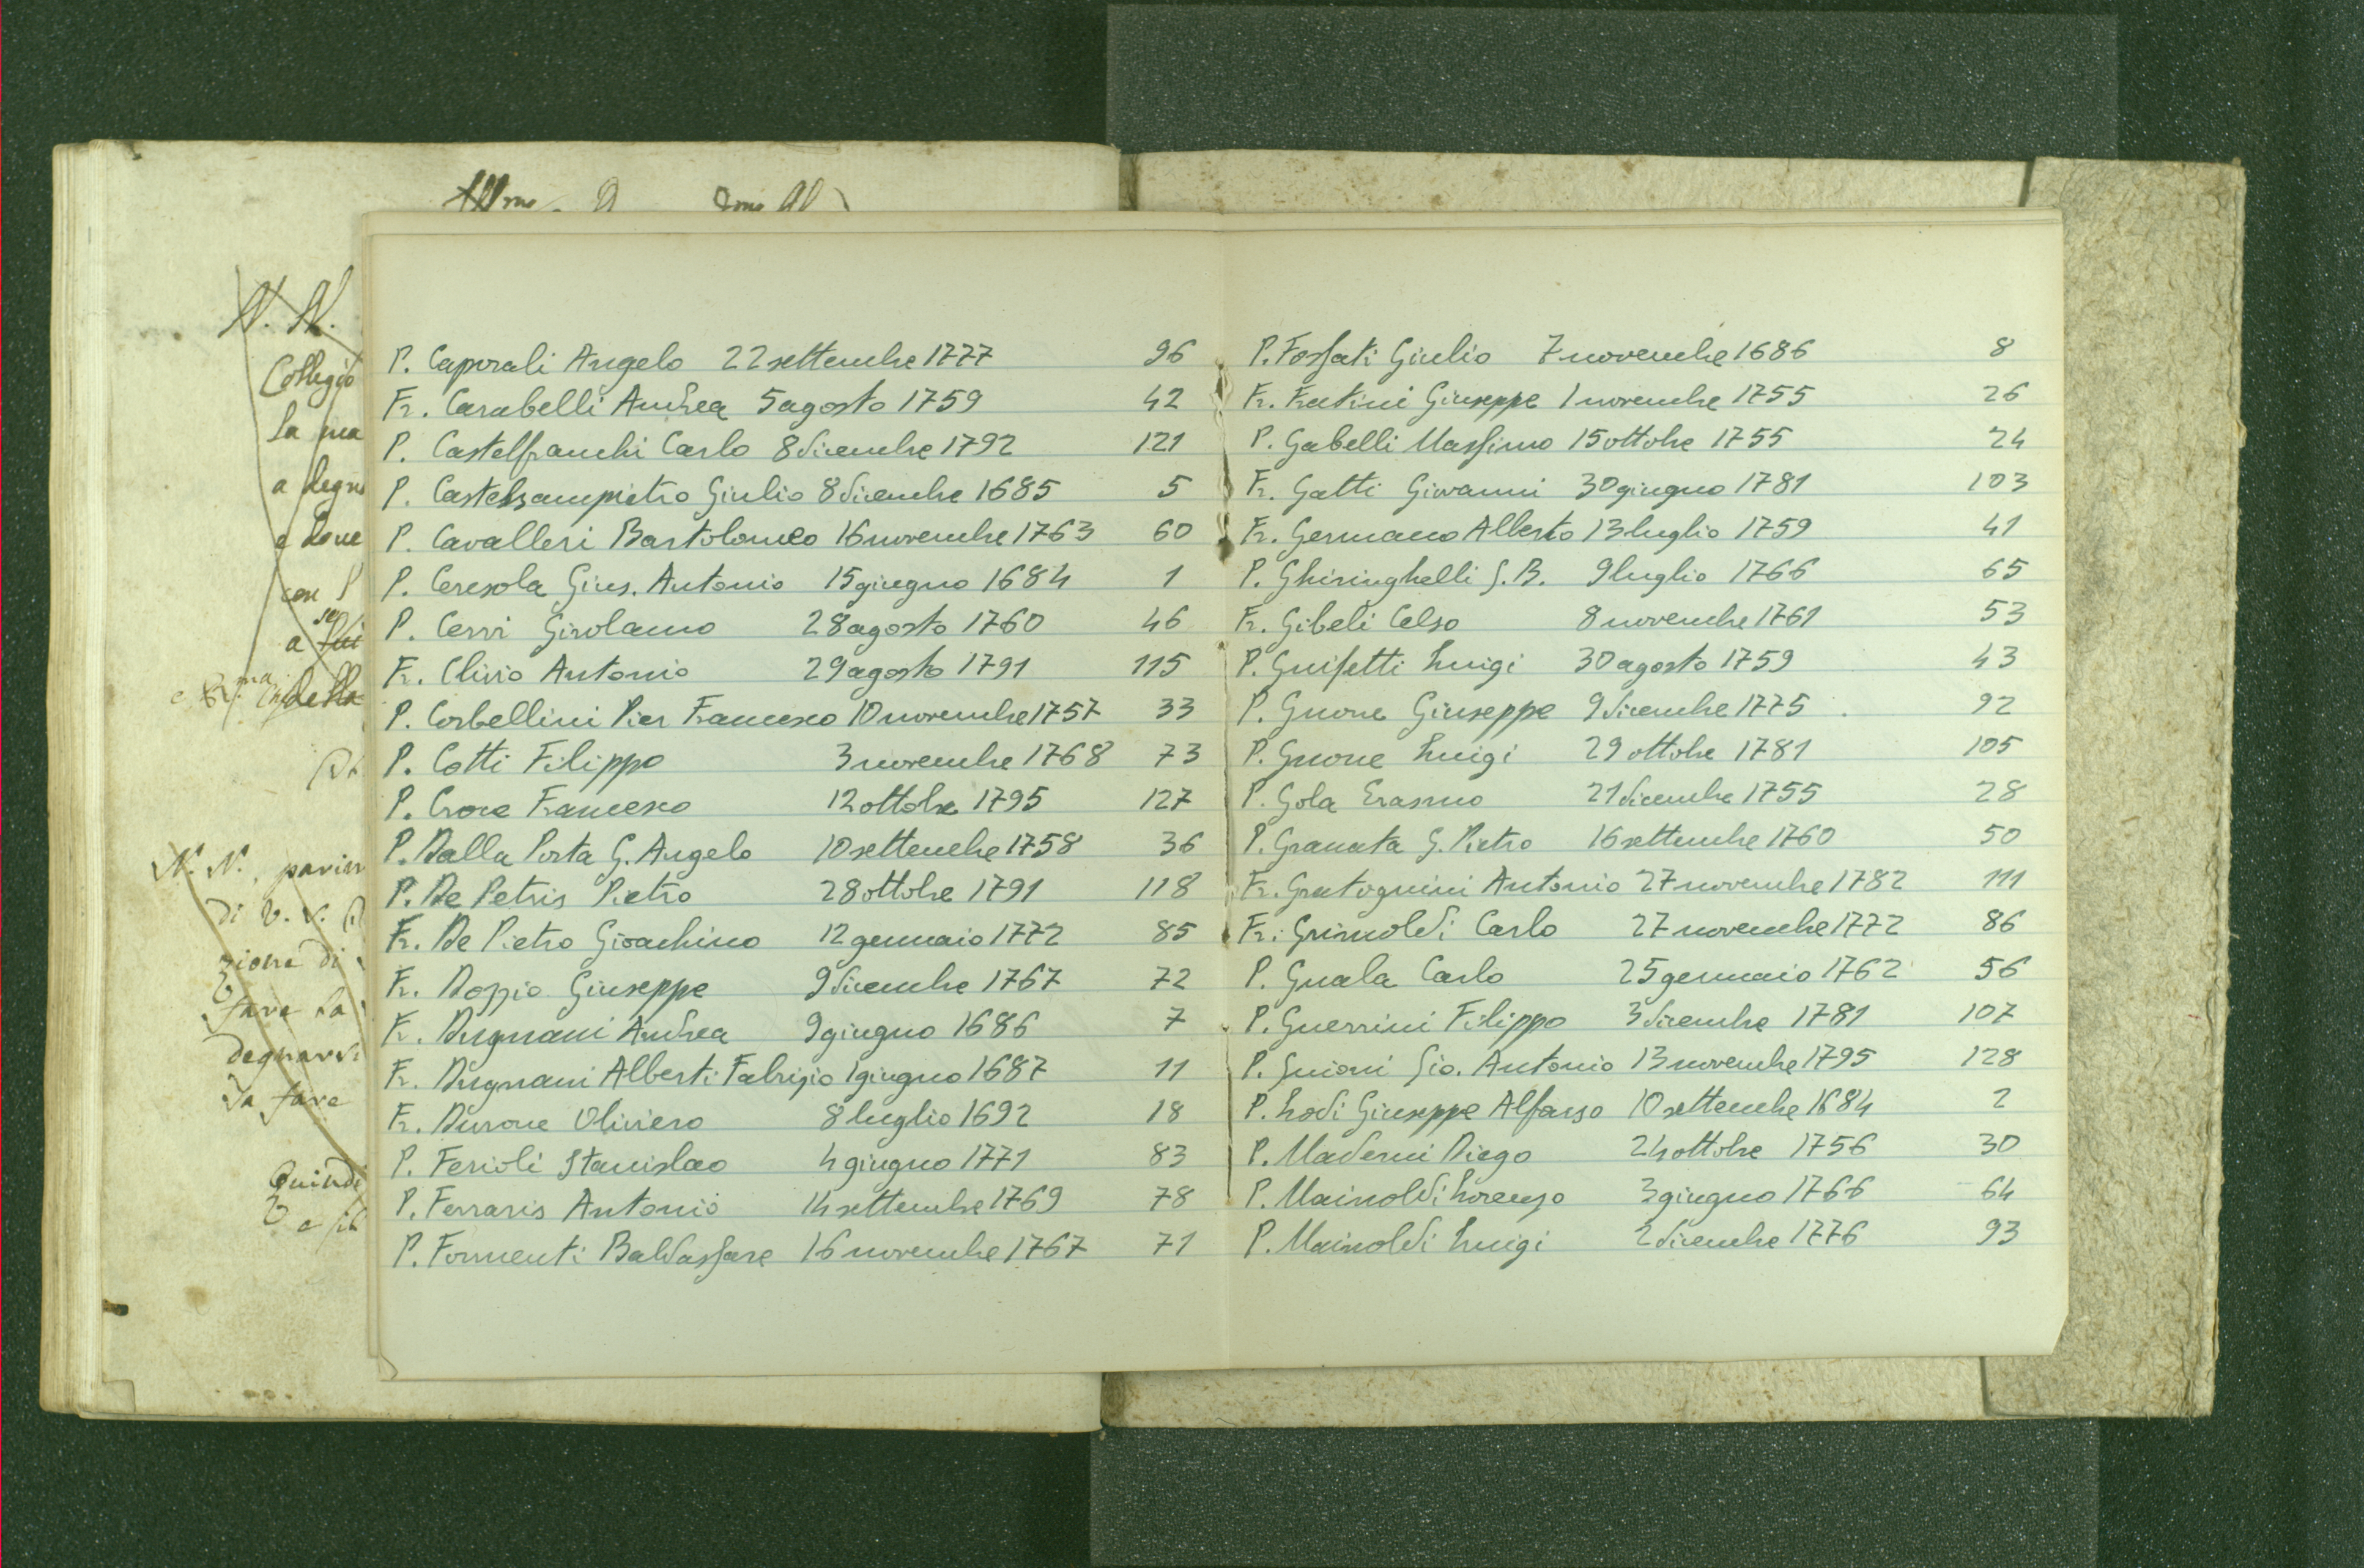 N. N.
Collegio
la ma
a degn
e dove
con
a
della
P. Caporali Angelo 22 settembre 1777 96
Fr. Carabelli Andrea 5 agosto 1759 42
P. Castelfranchi Carlo 8 dicembre 1792 121
P. Castelsampietro Giulio 8 dicembre 1685 5
P. Cavalleri Bartolomeo 16 novembre 1763 60
P. Ceresola Gius. Antonio 15 giugno 1684 1
P. Cervi Girolamo 28 agosto 1760 46
Fr. Clivio Antonio 29 agosto 1791 115
P. Corbellini Pier Francesco 10 novembre 1757 33
P. Cotti Filippo 3 novembre 1768 73
P. Croce Francesco 12 ottobre 1795 127
P. Dalla Porta G. Angelo 10 settembre 1758 36
P. De Petris Pietro 28 ottobre 1791 118
Fr. De Pietro Gioachino 12 gennaio 1772 85
Fr. Dozzio Giuseppe 9 dicembre 1767 72
Fr. Dugnani Andrea 9 giugno 1686 7
Fr. Dugnani Alberti Fabrizio 1 giugno 1687 11
Fr. Durone Oliviero 8 luglio 1692 18
P. Ferioli Stanislao 4 giugno 1771 83
P. Ferraris Antonio 14 settembre 1769 78
P. Formenti Baldassare 16 novembre 1767 71
P. Fossati Giulio 7 novembre 1686 8
Fr. Fratini Giuseppe 1 novembre 1755 26
P. Gabelli Massimo 15 ottobre 1755 24
Fr. Gatti Giovanni 30 giugno 1781 103
Fr. Germano Alberto 13 luglio 1759 41
P. Ghiringhelli G. B. 9 luglio 1766 65
Fr. Gibeli Celso 8 novembre 1761 53
P. Gnifetti Luigi 30 agosto 1759 43
P. Gnone Giuseppe 9 dicembre 1775 92
P. Gnone Luigi 29 ottobre 1781 105
P. Gola Erasmo 21 dicembre 1755 28
P. Granata G. Pietro 16 settembre 1760 50
Fr. Gratognini Antonio 27 novembre 1782 111
Fr. Grimoldi Carlo 27 novembre 1772 86
P. Guala Carlo 25 gennaio 1762 56
P. Guerrini Filippo 3 dicembre 1781 107
P. Guioni Gio. Antonio 13 novembre 1795 128
P. Lodi Giuseppe Alfonso 10 settembre 1684 2
P. Maderni Diego 24 ottobre 1756 30
P. Mainoldi Lorenzo 3 giugno 1766 64
P. Mainoldi Luigi 2 dicembre 1776 93
N. N., parim
di V. S.
zione di
fare la
degnarsi
da fare
Quindi